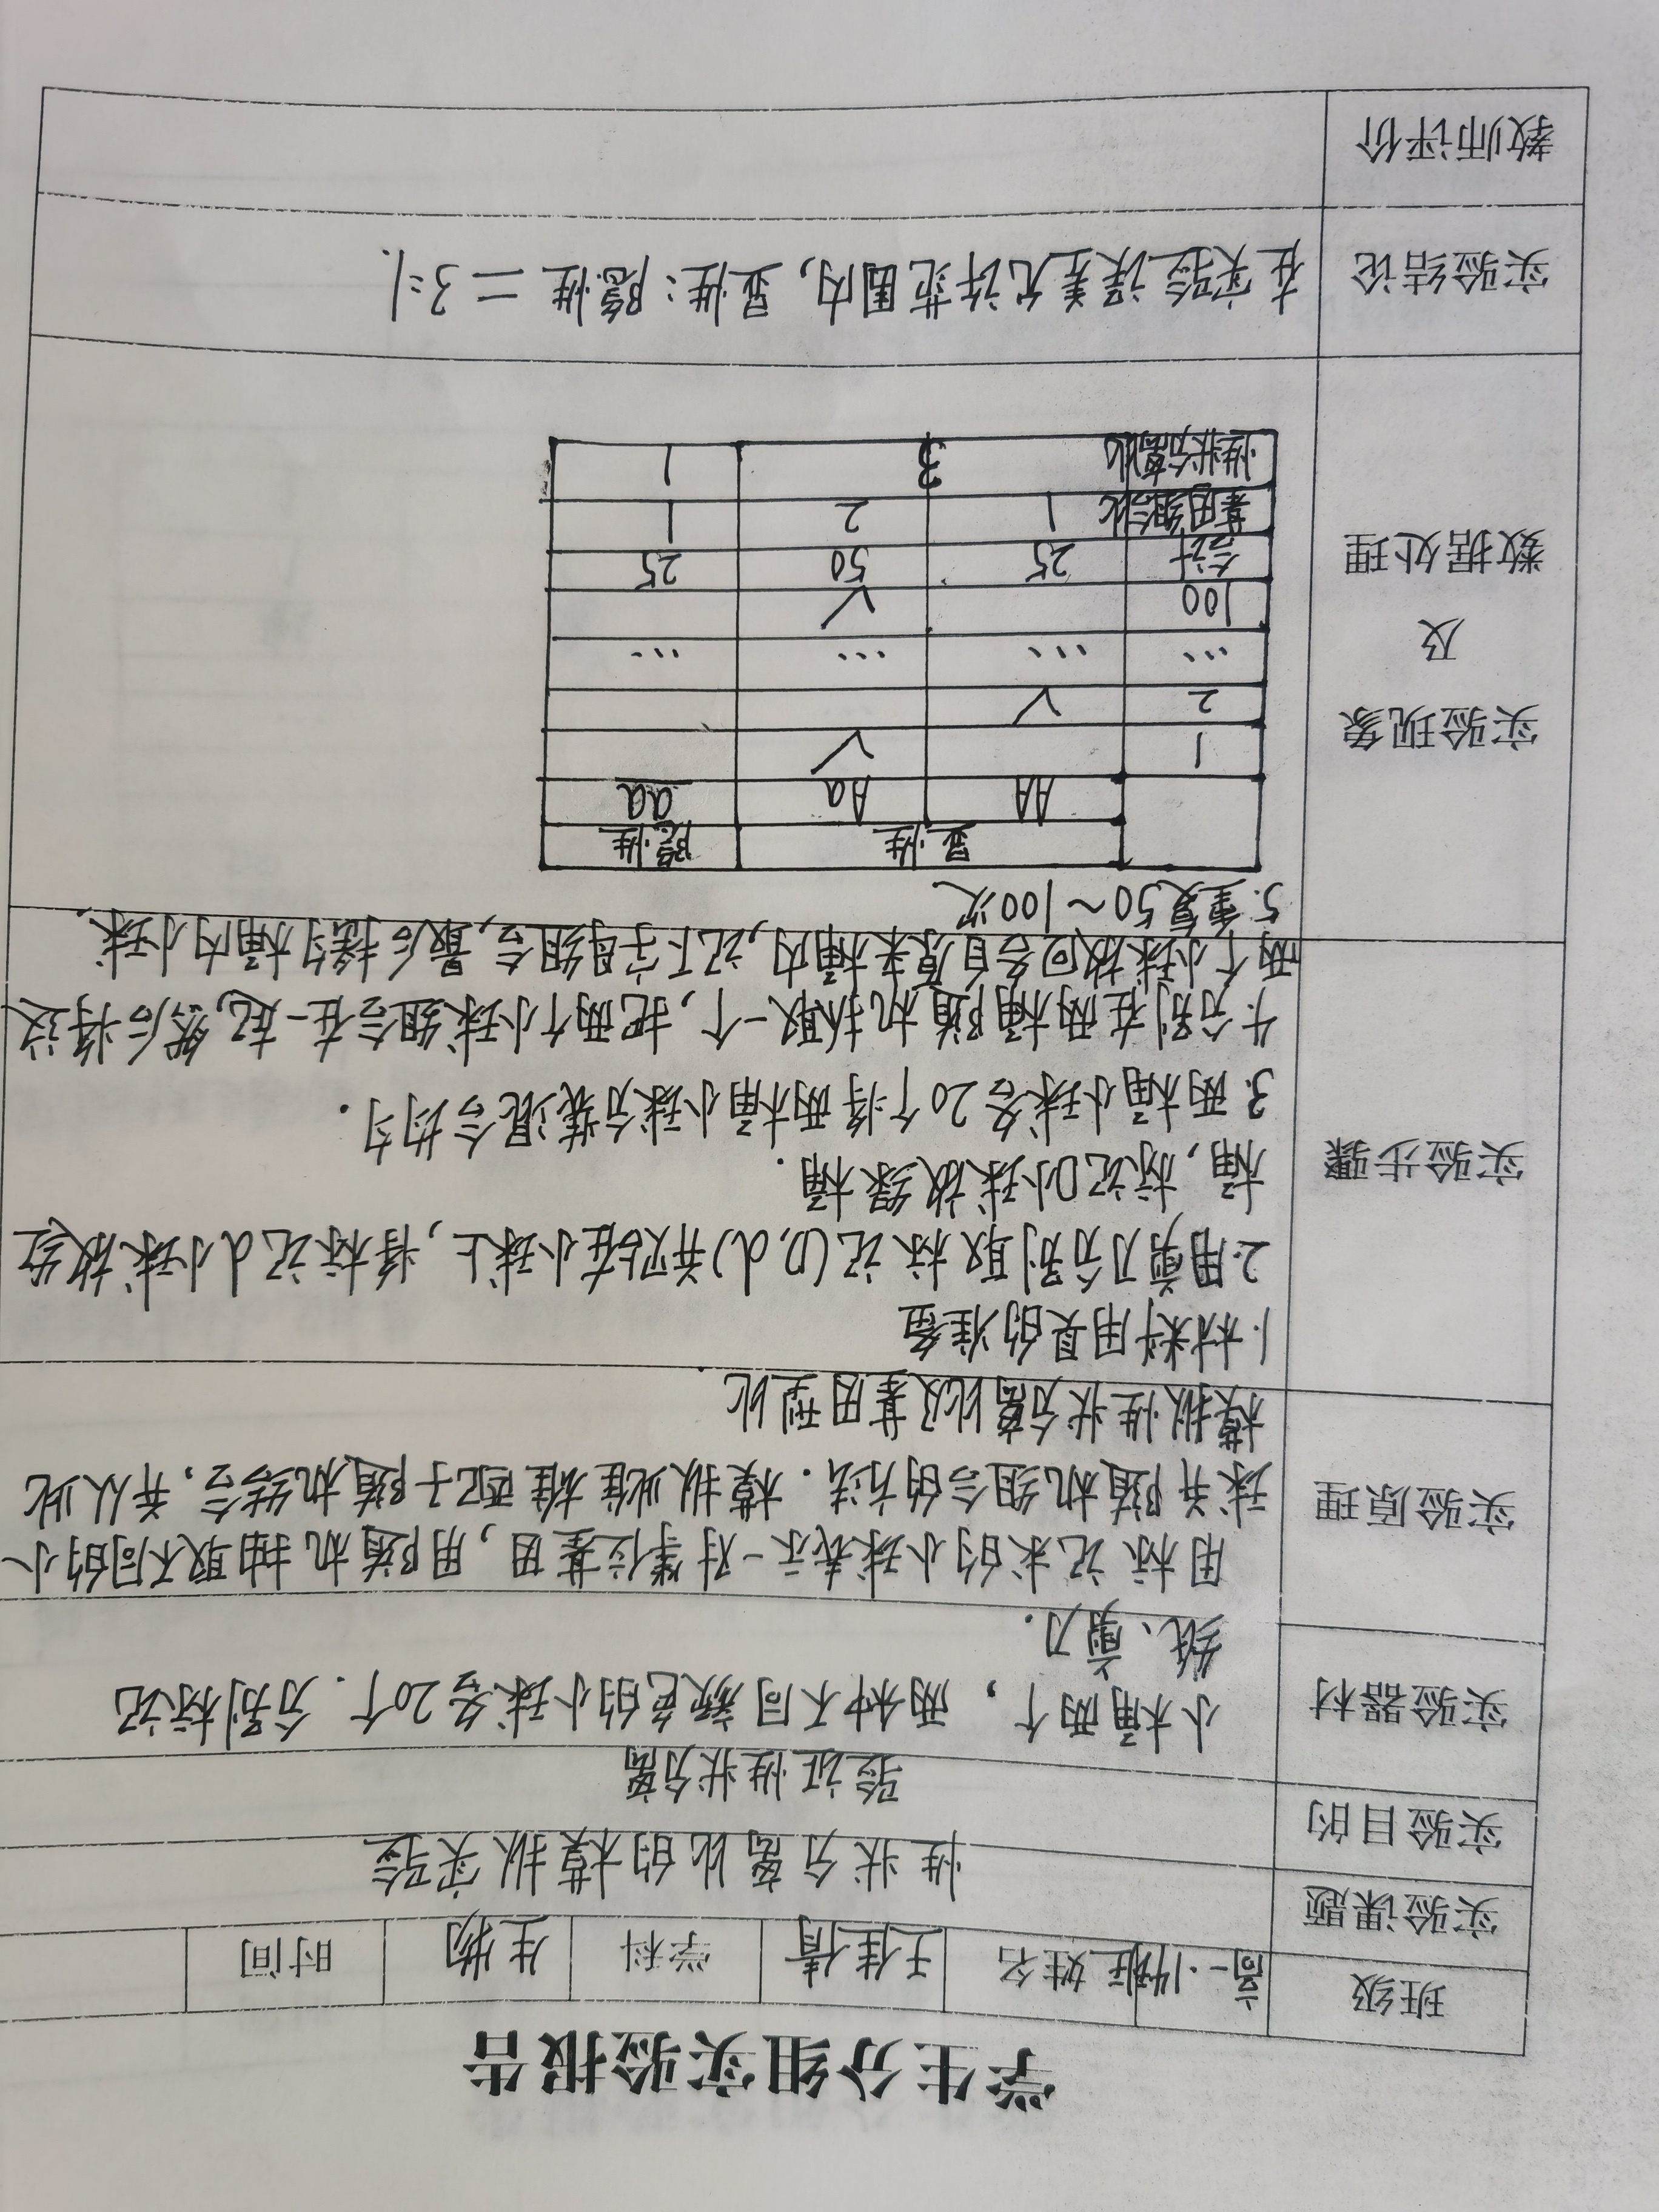 学生分组实验报告
班级 高一·14班 姓名 王佳倩 学科 生物 时间
实验课题 性状分离比的模拟实验
实验目的 验证性状分离
实验器材 小桶两个，两种不同颜色的小球各20个．分别标记
纸、剪刀．
实验原理 用标记求的小球表示一对等位基因，用随机抽取不同的小
球并随机组合的方法．模拟雌雄配子随机结合，并从此
模拟性状分离比及基因型比
实验步骤
1·材料用具的准备
2·用剪刀分别取标记(D,d)并贴在小球上，将标记d小球放红
桶，标记D小球放绿桶．
3.两桶小球各20个将两桶小球分装混合均匀．
4.分别在两桶随机抓取一个，把两个小球组合在一起，然后将这
两个小球放回各自原来桶内，记下字母组合，最后摇匀桶内小球．
5.重复50～100次
实验现象
及
数据处理
显性 隐性
AA Aa aa
1 √
2 √
… … … …
100 √
合计 25 50 25
基因组合比 1 2 1
性状分离比 3 1
实验结论 在实验误差允许范围内，显性：隐性＝3:1.
教师评价